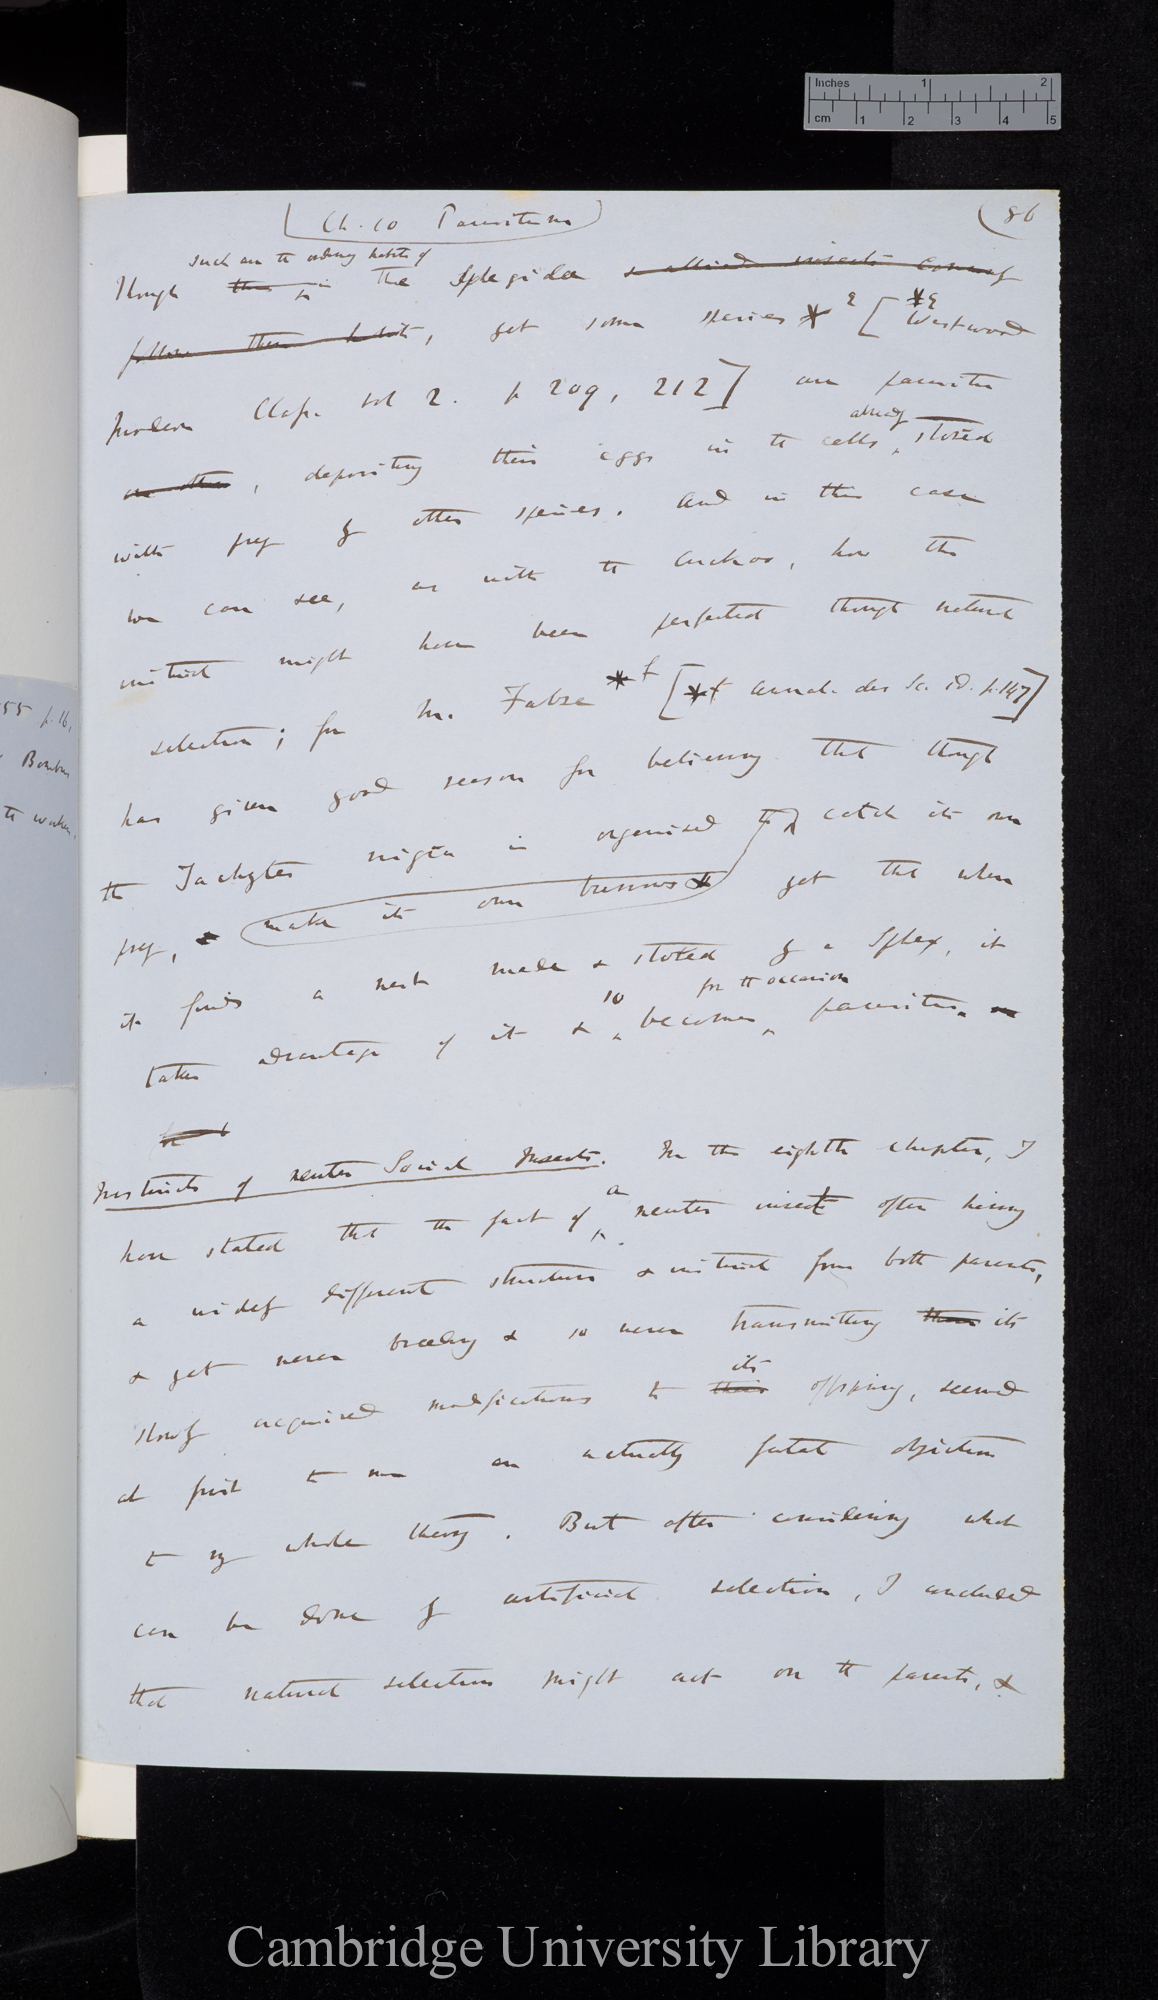 Inches 1 2
cm 1 2 3 4 5
Ch. 10 Parasitism
86
such are the ordinary habits of
Though this is in the Sphegidae & allied insects commonly
follow these habits, yet some species * 2 [ *2 Westwood
Modern Class. vol 2. p 209, 212] are parasitic
on other, depositing their eggs in the cells already stored
with prey of other species. And in this case
we can see, as with the cuckoo, how the
instinct might have been perfected through natural
selection; for M. Fabre * † [*† Annal. des Sc. p. 147]
has given good reason for believing that though
the Tachytes nigra is organised to catch its own
prey, & make its own burrows & yet that when
it finds a nest made & stored by a Sphex, it
takes advantage of it & so becomes for the occasion parasitic.
Instincts of neuter Social Insects. In the eighth chapter, I
have stated that the fact of a neuter insect often having
a widely different structure & instinct from both parents,
& yet never breeding & so never transmitting their its
slowly acquired modifications to their its offspring, seemed
at first to me an actually fatal objection
to my whole theory. But after considering what
can be done by artificial selection, I concluded
that natural selection might act on the parents, &
55 p. 16,
Bombus
the workers,
Cambridge University Library